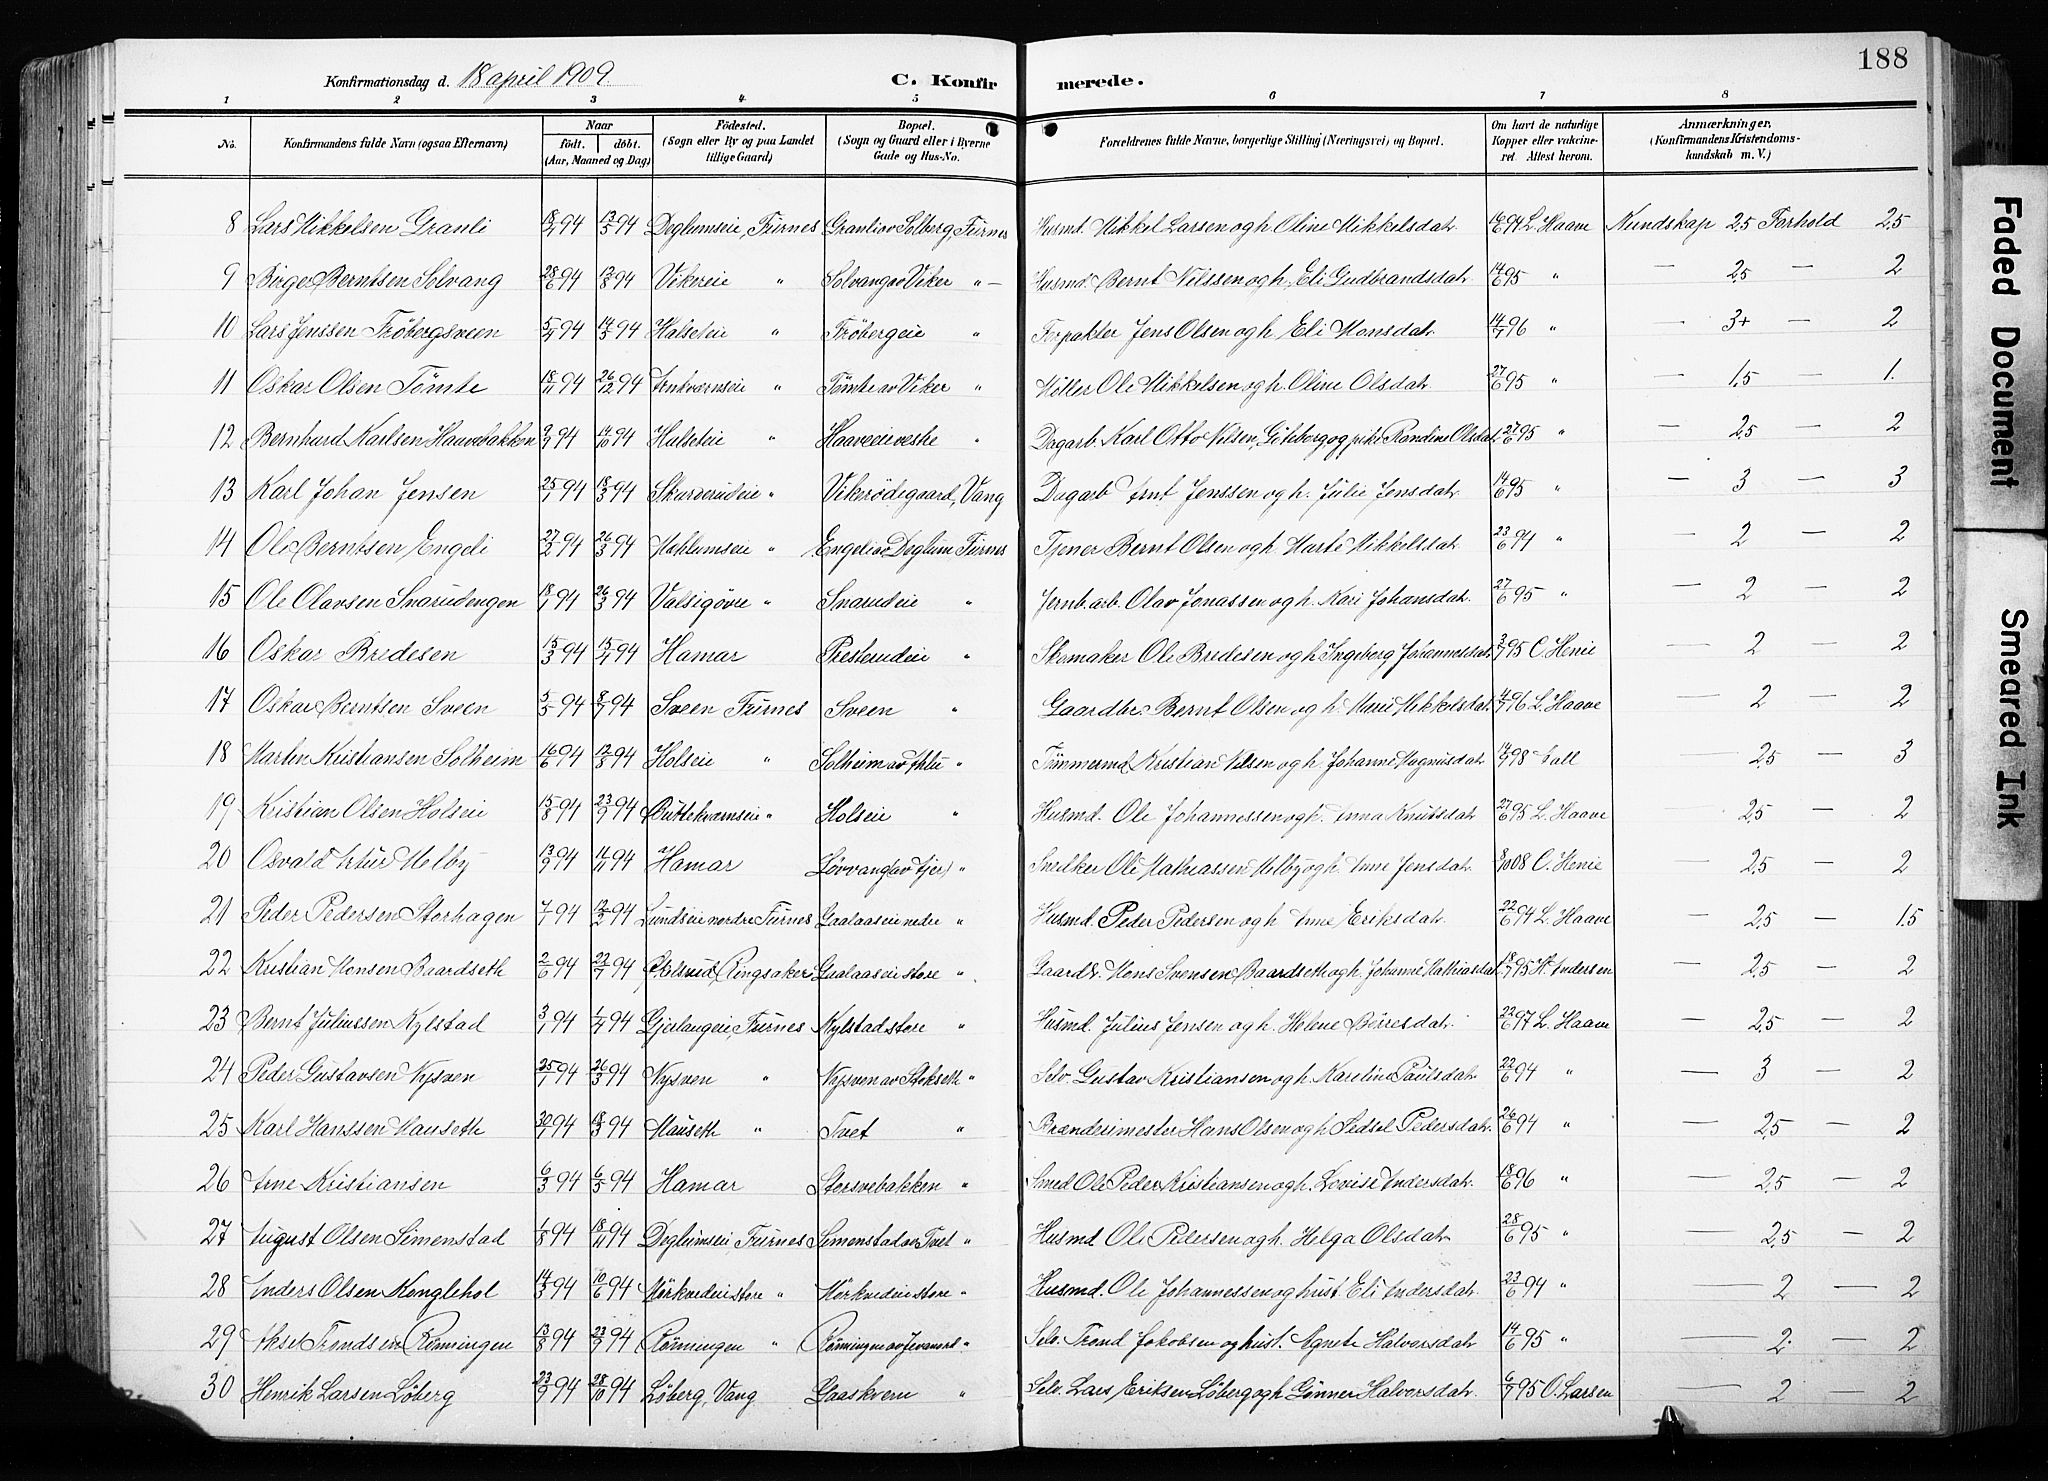 188
Konfirmationsdag d. 18 april 1909.
C. Konfirmerede.
1 2 3 4 5 6 7 8
No. Konfirmandens fulde Navn (ogsaa Efternavn) Naar født. døbt. (Aar, Maaned og Dag) Fødested. (Sogn eller By og paa Landet tillige Gaard) Bopæl. (Sogn og Gaard eller i Byerne Gade og Hus-No. Forældrenes fulde Navne, borgerlige Stilling (Næringsvei) og Bopæl. Om havt de naturlige Kopper eller vakcineret Attest herom. Anmærkninger, (Konfirmandens Kristendomskundskab m. V.)
8 Lars Mikkelsen Granli 18/4 94 13/5 94 Deglumseie, Furnes Granli av Solberg, Furnes Husmd. Mikkel Larsen og h. Oline Mikkelsdatr. 14/6 94 L. Haave Kundskap 2,5 Forhold 2,5
9 Birger Berntsen Solvang 28/6 94 12/8 94 Vikereie " Solvang av Viker " Husmd. Bernt Nilssen og h. Eli Gudbrandsdatr. 14/6 95 " — 2,5 — 2
10 Lars Jenssen Frøbergsveen 5/4 94 14/5 94 Halseteie " Frøbergeie " Forpakter Jens Olsen og h. Eli Monsdatr. 14/7 96 " — 3+ — 2
11 Oskar Olsen Tømte 18/11 94 26/12 94 Arnkværnseie " Tømte av Viker " Møller Ole Mikkelsen og h. Oline Olsdatr. 27/6 95 " — 1,5 — 1.
12 Bernhard Karlsen Haavebakken 9/9 94 14/10 94 Halseteie " Haaveeie vestre " Dagarb. Karl Otto Nilsen, Göteborg og pike Randine Olsdatr. 27/6 95 " — 2,5 — 2
13 Karl Johan Jensen 25/1 94 18/3 94 Skurverudeie " Vikerødegaard, Vang Dagarb. Arnt Jenssen og h. Julie Jensdatr. 14/6 95 " — 3 — 3
14 Ole Berntsen Engeli 27/2 94 26/3 94 Mahlumseie " Engeli av Deglum, Furnes Tjener Bernt Olsen og h. Marte Mikkelsdatr. 23/6 94 " — 2 — 2
15 Ole Olavsen Snarudengen 18/1 94 26/3 94 Valsigøvre " Snarudeie " Jernb.arb. Olav Jonassen og h. Kari Johansdatr. 27/6 95 " — 2 — 2
16 Oskar Bredesen 15/3 94 15/4 94 Hamar Presterudeie " Skomaker Ole Bredesen og h. Ingeborg Johannesdatr. 3/7 95 C. Henie — 2 — 2
17 Oskar Berntsen Sveen 5/5 94 8/7 94 Sveen Furnes Sveen " Gaardbr. Bernt Olsen og h. Marie Mikkelsdatr. 4/7 96 L. Haave — 2 — 2
18 Martin Kristiansen Solheim 16/6 94 12/8 94 Holseie " Solheim av " Tømmermd. Kristian Nilsen og h. Johanne Magnusdatr. 14/9 98 — 2,5 — 3
19 Kristian Olsen Holseie 15/8 94 23/9 94 Buttekværnseie " Holseie " Husmd. Ole Johannessen og h. Anna Knutsdatr. 27/6 95 L. Haave — 2,5 — 2
20 Osvald Artur Melby 13/9 94 11/11 94 Hamar Løvvang (av Tjer) " Snedker Ole Mathiassen Melby og h. Anne Jensdatr. 8/10 08 C. Henie — 2,5 — 2
21 Peder Pedersen Storhagen 7/1 94 12/2 94 Lundseie nordre Furnes Gaalaaseie nedre " Husmd. Peder Pedersen og h. Anne Eriksdatr. 22/6 94 L. Haave — 2,5 — 1.5
22 Kristian Monsen Baardseth 2/6 94 22/7 94 Ringsaker Gaalaaseie store " Gaardbr. Mons Svensen Baardseth og h. Johanne Mathiasdatr. 18/7 95 Andersen — 2,5 — 2
23 Bernt Juliussen Nylstad 3/1 94 1/4 94 Gjerlangeie, Furnes Nylstad store " Husmd. Julius Jensen og h. Helene Børresdatr. 22/6 97 L. Haave — 2,5 — 2
24 Peder Gustavsen Nysven 25/1 94 26/3 94 Nysven " Nysven av Stokseth " Selv. Gustav Kristiansen og h. Karoline Paulsdatr. 22/6 94 " — 3 — 2
25 Karl Hanssen Mauseth 30/1 94 18/3 94 Mauseth " Tvet " Brænderimester Hans Olsen og h. Sedsel Pedersdatr. 26/6 94 " — 2,5 — 2
26 Arne Kristiansen 6/3 94 6/5 94 Hamar Storsvebakken " Smed Ole Peder Kristiansen og h. Lovise Andersdatr. 18/6 96 " — 2,5 — 2
27 August Olsen Simenstad 1/8 94 18/11 94 Deglumseie Furnes Simenstad av Tvet " Husmd. Ole Pedersen og h. Helga Olsdatr. 28/6 95 " — 2,5 — 2
28 Anders Olsen Konglehol 14/3 94 10/6 94 Mørkvedeie store " Mørkvedeie store " Husmd. Ole Johannessen og hust. Eli Andersdatr. 23/6 94 " — 2 — 2
29 Aksel Trondsen Rønningen 13/8 94 23/9 94 Rønningen " Rønningen av Jevanord " Selv. Trond Jakobsen og hust. Agnete Halvorsdatr. 14/6 95 " — 2 — 2
30 Henrik Larsen Løberg 23/9 94 28/10 94 Løberg, Vang Gaaskvern " Selv. Lars Eriksen Løberg og h. Gunner Halvorsdatr. 6/7 95 O. Larsen — 2 — 2
Faded Document
Smeared Ink